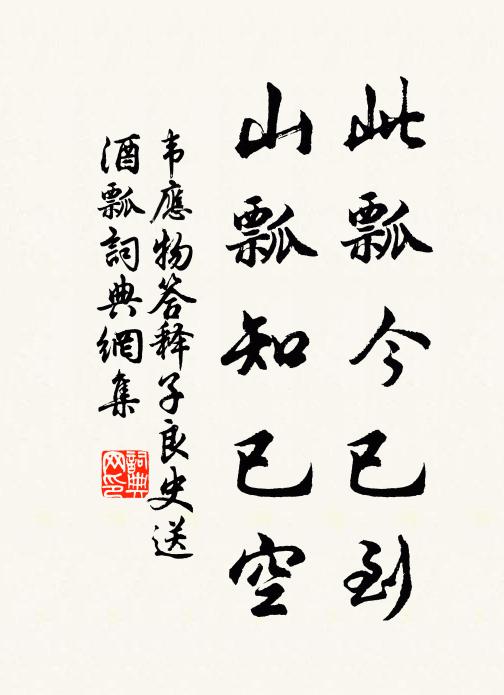 此瓢今已到
山瓢知已空
韦應物答释子良史送
酒瓢詞典網集
詞典网印